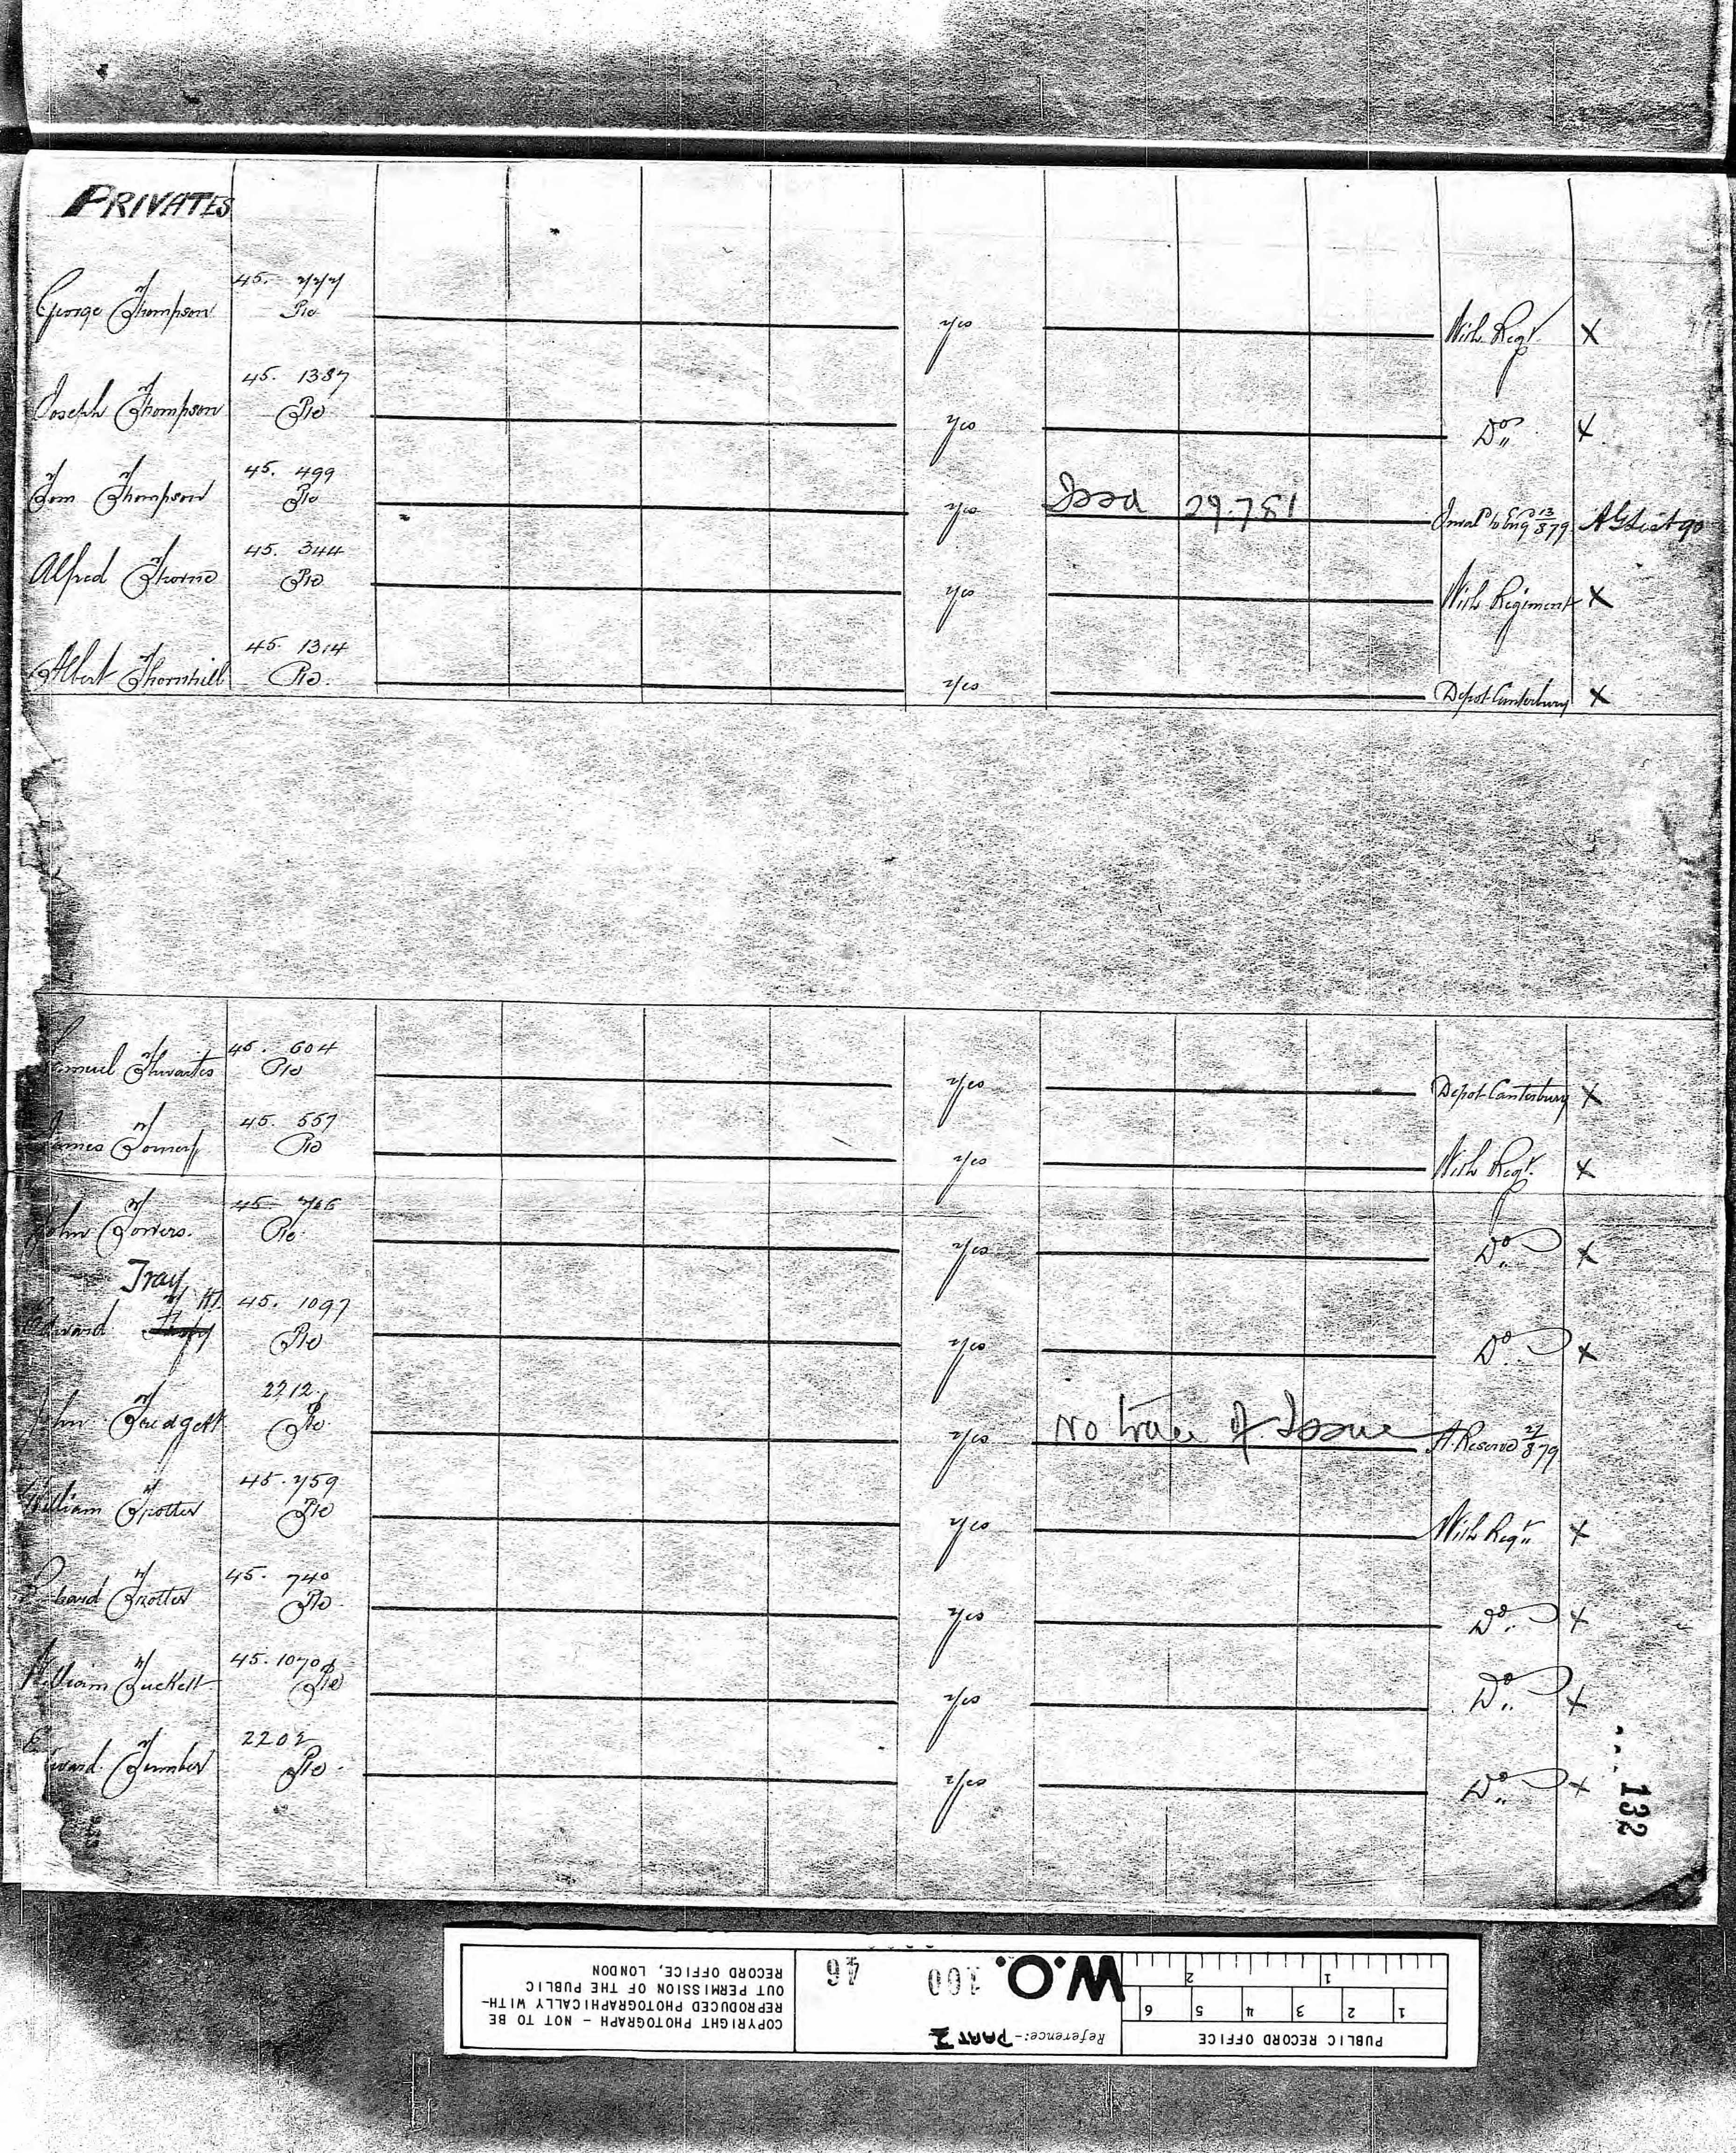 PRIVATES
George Thompson 45. 777 Pte yes With Regt. X
Joseph Thompson 45. 1387 Pte yes Do X
Tom Thompson 45. 499 Pte yes Issd 29.7.81 Invald to Eng 13/8 79 AG List 90
Alfred Thorne 45. 344 Pte yes With Regiment X
Albert Thornhill 45. 1314 Pte. yes Depot Canterbury X
Thwaites 45. 604 Pte yes Depot Canterbury X
James 45. 557 Pte yes With Regt. X
John Towers. 45 Pte. yes Do X
Tray
Edward 45. 1097 Pte yes Do X
John 2212. Pte. yes No trace of Issue A. Reserve 879
William Trotter 45. 759 Pte yes With Regt. X
Trotter 45. 740 Pte. yes Do X
William Tuckett 45. 1070 Pte yes Do X
2202 Pte. yes Do X
132
PUBLIC RECORD OFFICE
1 2 3 4 5 6
1 2
Reference:- PART 1
W.O. 100 46
COPYRIGHT PHOTOGRAPH - NOT TO BE
REPRODUCED PHOTOGRAPHICALLY WITH-
OUT PERMISSION OF THE PUBLIC
RECORD OFFICE, LONDON